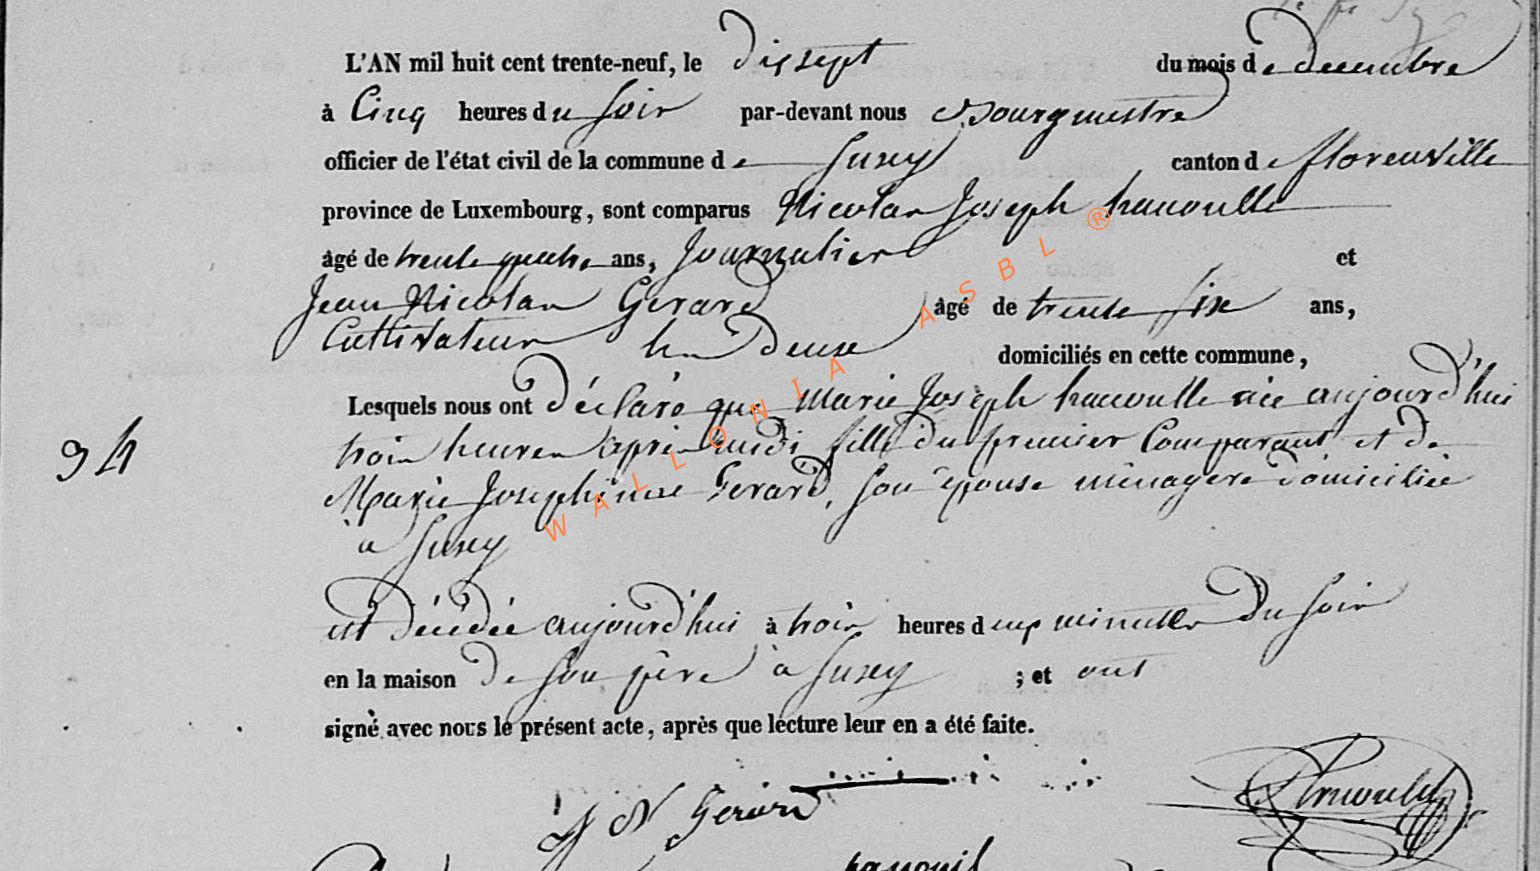 L'AN mil huit cent trente-neuf, le dix sept du mois de decembre
à Cinq heures du soir par-devant nous Bourgmestre
officier de l'état civil de la commune de Suxy canton de florenville
province de Luxembourg, sont comparus Nicolas Joseph hanoulle
âgé de trente quatre ans, Journalier et
Jean Nicolas Gerard âgé de trente six ans,
Cultivateur les Deux domiciliés en cette commune,
Lesquels nous ont Déclaré que Marie Joseph hanoulle née aujourd'hui
trois heures après midi fille du premier Comparant et de
34
Marie Josephinne Gerard, son épouse ménagère domiciliée
à Suxy
est décédée aujourd'hui à trois heures cinq minutes Du soir
en la maison de son père à Suxy ; et ont
signé avec nous le présent acte, après que lecture leur en a été faite.
J N Gerard
WALLONIA ASBL ®